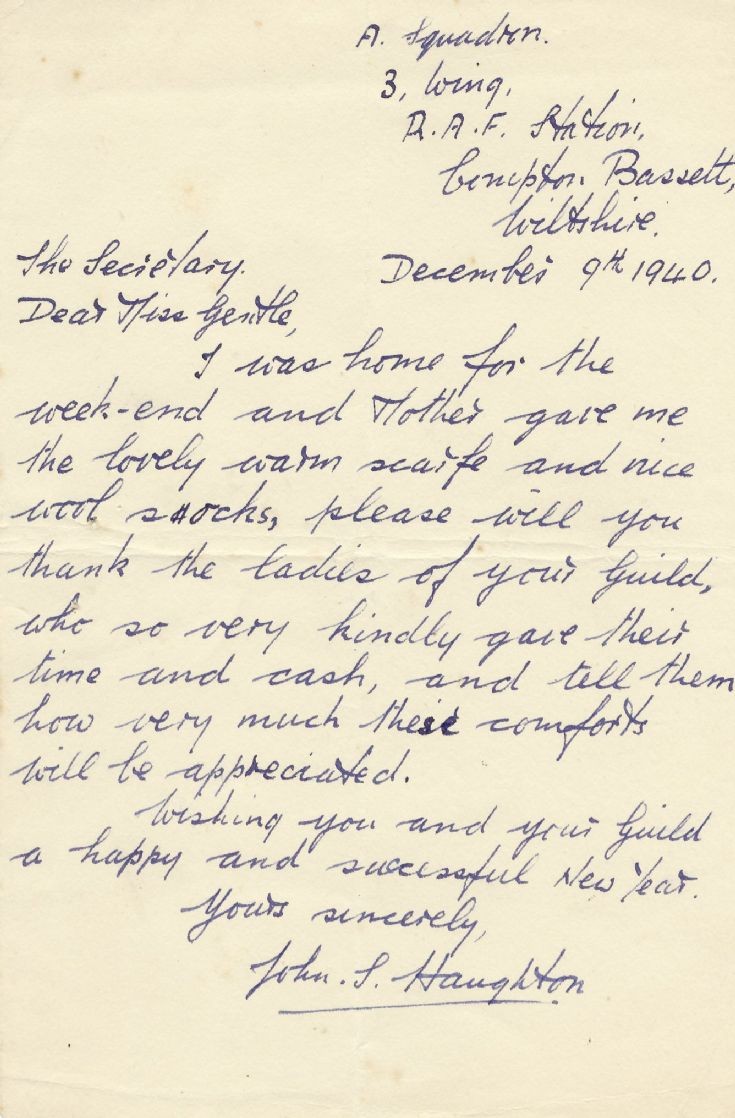 A. Squadron.
3, Wing,
R.A.F. Station,
Compton Bassett,
Wiltshire.
The Secretary.
December 9th 1940.
Dear Miss Gentle,
I was home for the
week-end and Mother gave me
the lovely warm scarfe and nice
wool socks, please will you
thank the ladies of your Guild,
who so very kindly gave their
time and cash, and tell them
how very much these comforts
will be appreciated.
Wishing you and your Guild
a happy and successful New Year.
Yours sincerely,
John. S. Haughton